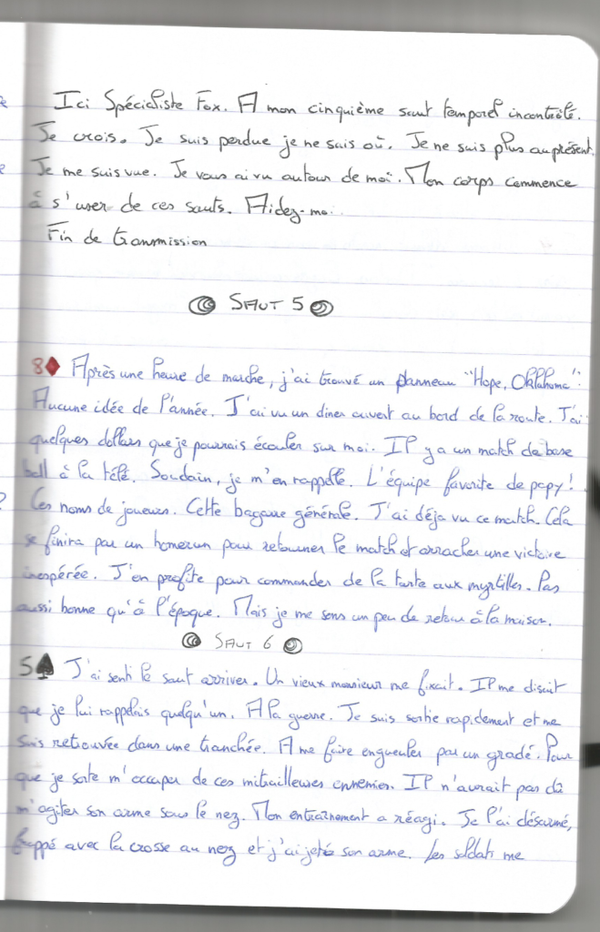 Ici Spécialiste Fox. A mon cinquième saut temporel incontrôlé.
Je crois. Je suis perdue je ne sais où. Je ne suis plus au présent.
Je me suis vue. Je vous ai vu autour de moi. Mon corps commence
à s'user de ces sauts. Aidez-moi.
Fin de transmission
SAUT 5
8♦ Après une heure de marche, j'ai trouvé un panneau "Hope, Oklahoma".
Aucune idée de l'année. J'ai vu un diner ouvert au bord de la route. J'ai
quelques dollars que je pourrais écouler sur moi. Il y a un match de base
ball à la télé. Soudain, je m'en rappelle. L'équipe favorite de papy !
Ces noms de joueurs. Cette bagarre générale. J'ai déja vu ce match. Cela
se finira par un homerun pour retourner le match et arracher une victoire
inespérée. J'en profite pour commander de la tarte aux myrtilles. Pas
aussi bonne qu'à l'époque. Mais je me sens un peu de retour à la maison.
SAUT 6
5♠ J'ai senti le saut arriver. Un vieux monsieur me fixait. Il me disait
que je lui rappelais quelqu'un. A la guerre. Je suis sortie rapidement et me
suis retrouvée dans une tranchée. A me faire engueuler par un gradé. Pour
que je sorte m'occuper de ces mitrailleuses ennemies. Il n'aurait pas dû
m'agiter son arme sous le nez. Mon entraînement a réagi. Je l'ai désarmé,
frappé avec la crosse au nez et j'ai jeté son arme. Les soldats me